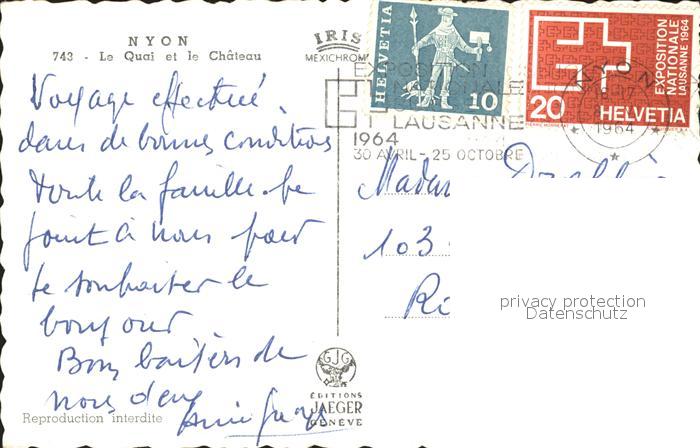 NYON
743 - Le Quai et le Château
IRIS
MEXICHROM
HELVETIA
10
EXPOSITION NATIONALE LAUSANNE 1964
20
HELVETIA
EXPOSITION
NATIONALE
LAUSANNE
1964
30 AVRIL - 25 OCTOBRE
NYON
1964
Voyage effectué
dans de bonnes conditions
toute la famille se
joint à nous pour
te souhaiter le
bonjour
Bons baisers de
nous deux
Madam
103
privacy protection
Datenschutz
GJG
ÉDITIONS
JAEGER
GENÈVE
Reproduction interdite